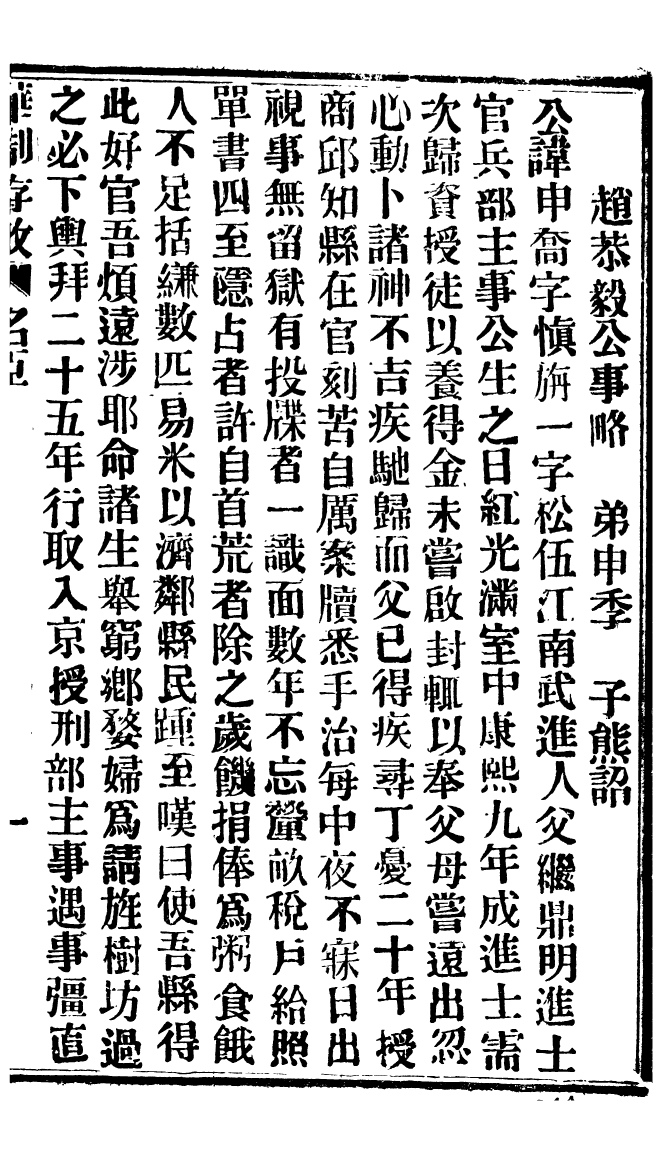 趙恭毅公事略 弟申季 子熊詔
公諱申喬字慎旃一字松伍江南武進人父繼鼎明進士
官兵部主事公生之日紅光滿室中康熙九年成進士需
次歸資授徒以養得金未嘗啟封輒以奉父母嘗遠出忽
心動卜諸神不吉疾馳歸而父已得疾尋丁憂二十年授
商邱知縣在官刻苦自厲案牘悉手治每中夜不寐日出
視事無留獄有投牒者一識面數年不忘釐畝稅戶給照
單書四至隱占者許自首荒者除之歲饑捐俸爲粥食餓
人不足括縑數匹易米以濟鄰縣民踵至嘆曰使吾縣得
此好官吾煩遠涉耶命諸生舉窮鄉嫠婦爲請旌樹坊過
之必下輿拜二十五年行取入京授刑部主事遇事彊直
名臣
一